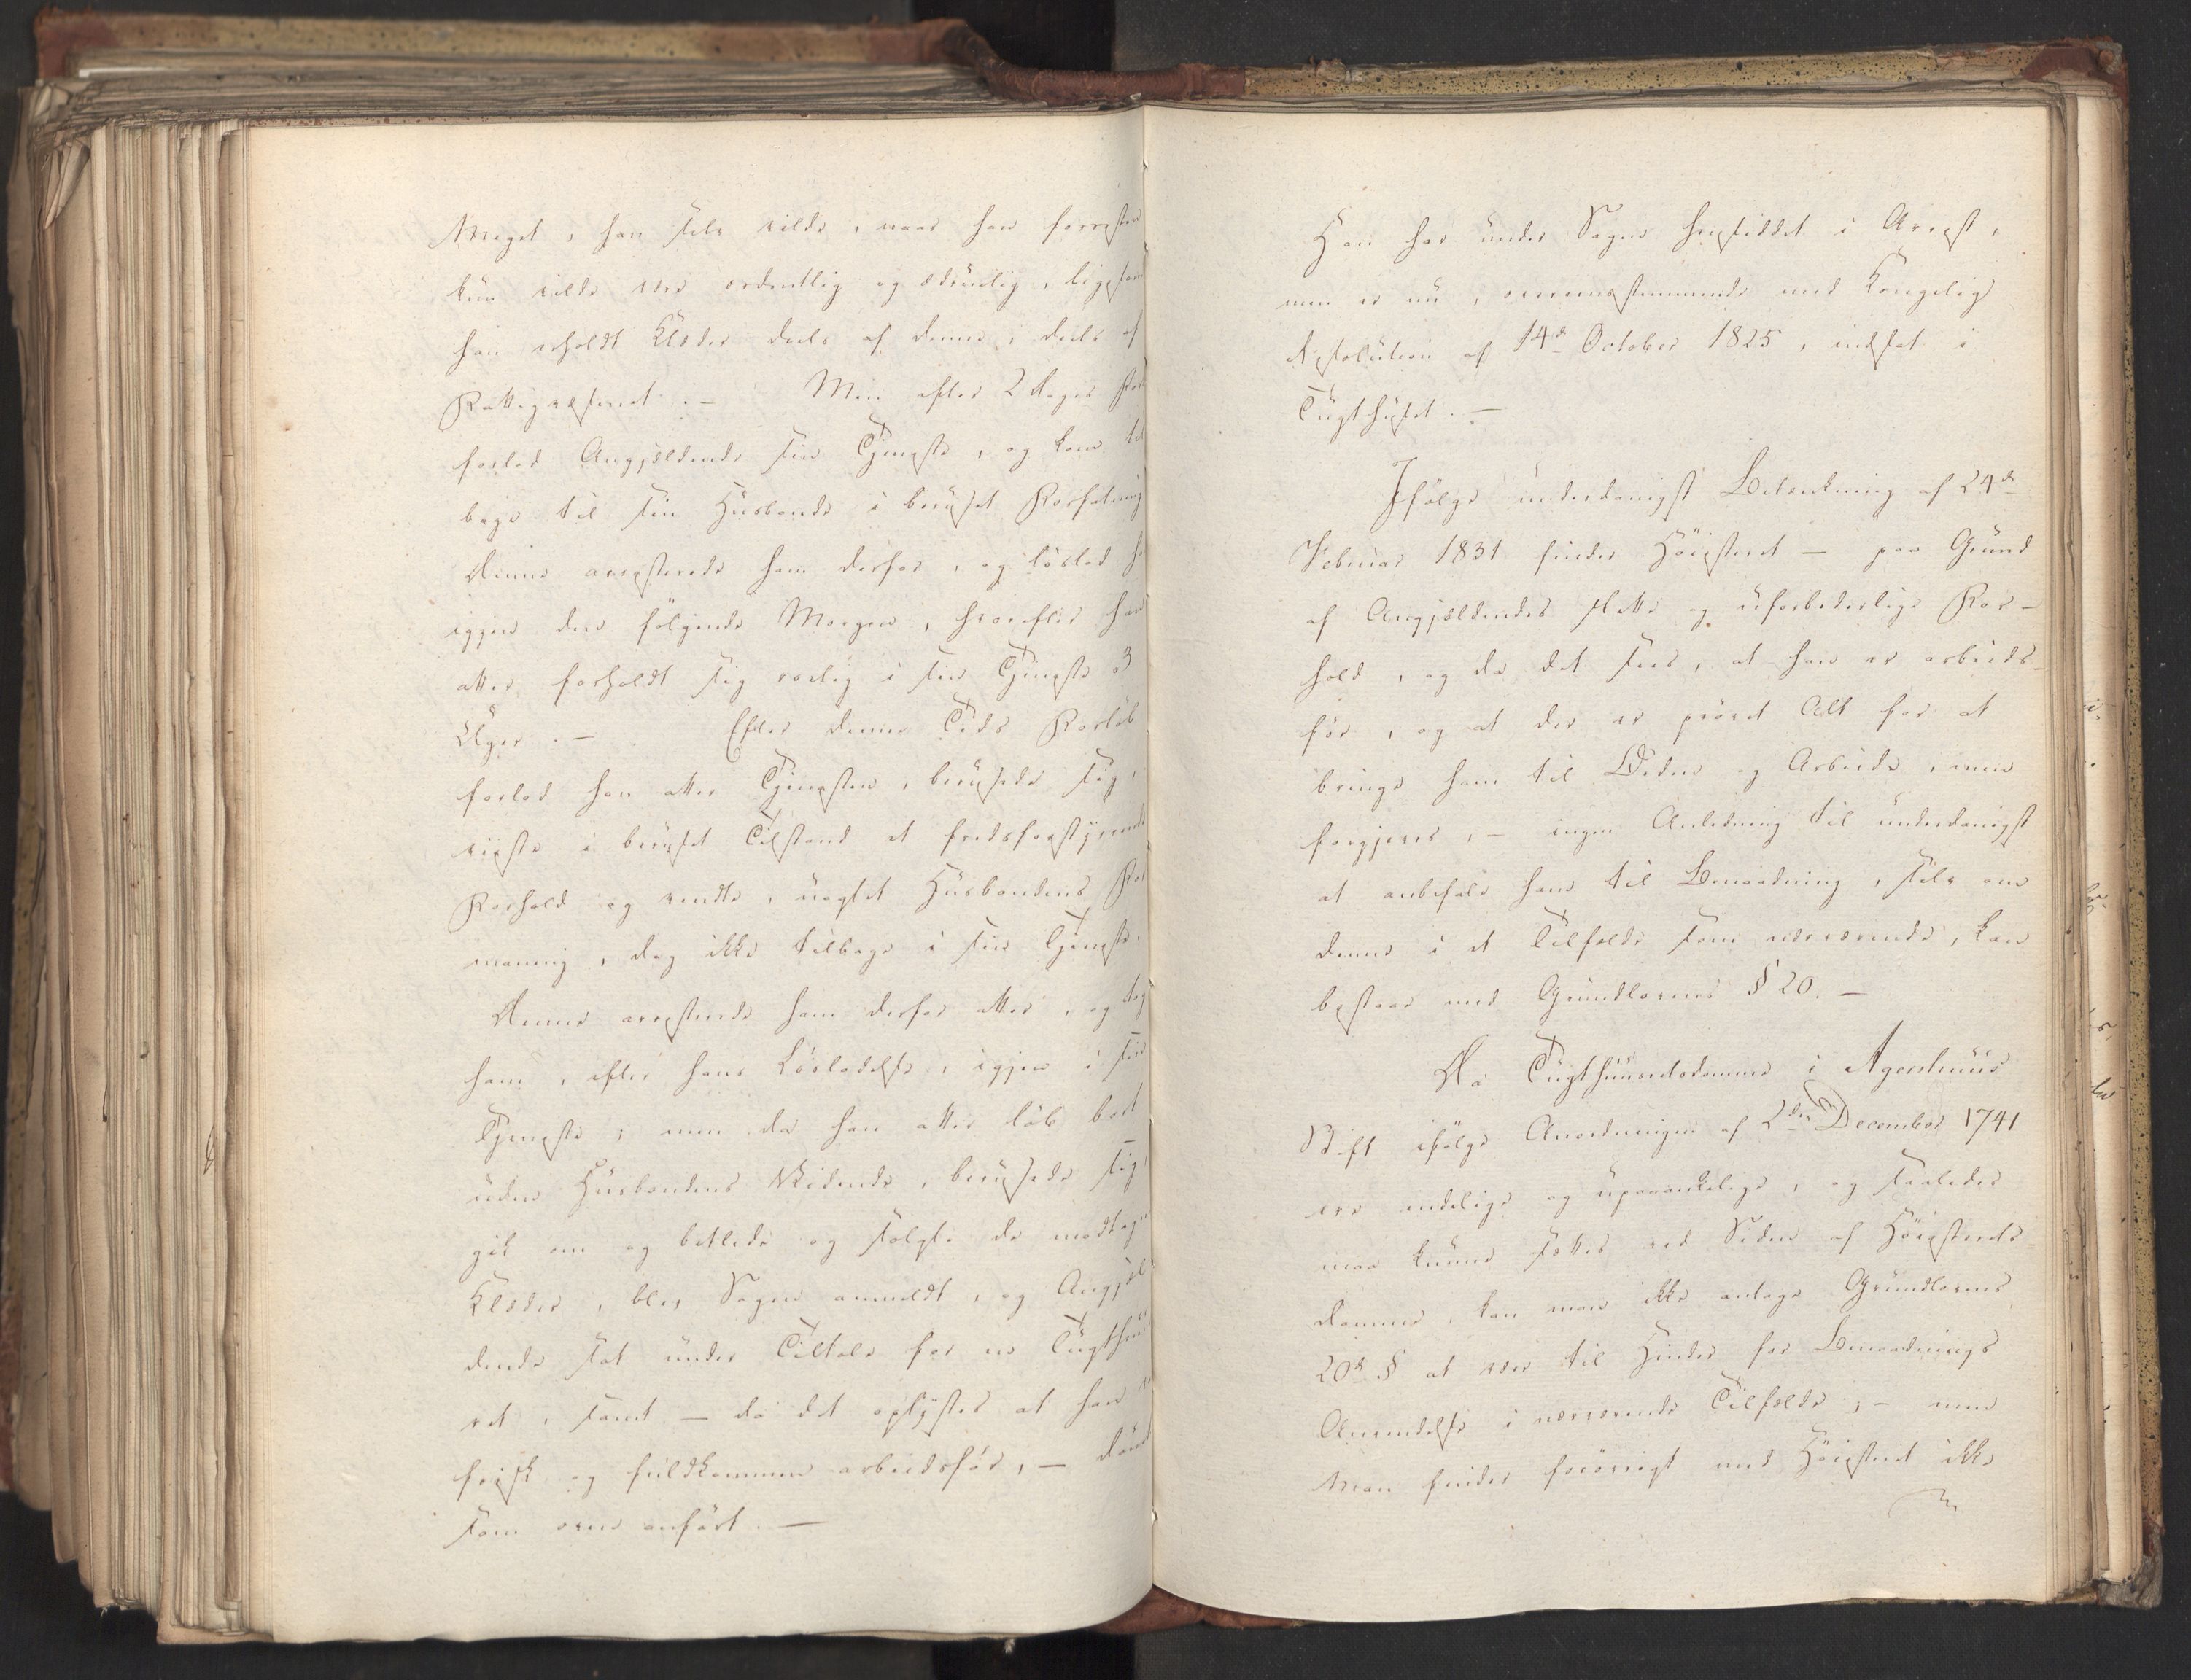 Meget, han selv vilde, naar han forresten
kun vilde være ordentlig og ædruelig, ligesom
han erholdt Klæder deels af denne, deels af
Fattigvæsenet. — Men efter 2 Dages For
forlod Angjældende sin Tjeneste, og kom til
bage til sin Huusbonde i beruset Forfatning
Denne arresterede ham derfor, og løslod ham
igjen den følgende Morgen, hvorefter han
atter forholdt sig rolig i sin Tjeneste 3
Uger. — Efter denne Tids Forløb
forlod han atter Tjenesten, berusede sig,
viiste i beruset Tilstand et fredsforstyrrende
Forhold og vendte, uagtet Huusbondens For
maning, dog ikke tilbage i sin Tjeneste.
Denne arresterede ham derfor atter, og tog
ham, efter hans Løsladelse, igjen i sin
Tjeneste; men da han atter løb bort
uden Huusbondens Vidende, berusede sig,
gik om og betlede og solgte de modtagne
Klæder, blev Sagen anmeldt, og Angjæl
dende sat under Tiltale for en Tugthuus
ret, samt — da det oplystes at han er
frisk og fuldkommen arbeidsfør, — dømt
som oven anført. —
Han har under Sagen hensiddet i Arrest,
men er nu, overeensstemmende med Kongelig
Resolution af 14d October 1825, indsat i
Tugthuset. —
Ifølge underdanigst Betænkning af 24d
Februar 1831 finder Høiesteret — paa Grund
af Angjældendes slette og uforbederlige For-
hold, og da det sees, at han er arbeids-
før, og at der er prøvet Alt for at
bringe ham til Orden og Arbeide, men
forgjeves, — ingen Anledning til underdanigst
at anbefale ham til Benaadning, selv om
denne i et Tilfælde som nærværende, kan
bestaae med Grundlovens § 20. —
Da Tugthuusretsdomme i Agershuus
Stift ifølge Anordningen af 2den December 1741
ere endelige og upaaankelige, og saaledes
maa kunne sættes ved Siden af Høiesterets-
domme, kan man ikke antage Grundlovens
20d § at være til Hinder for Benaadnings
Anvendelse i nærværende Tilfælde; — men
Man finder forøvrigt med Høiesteret ikke